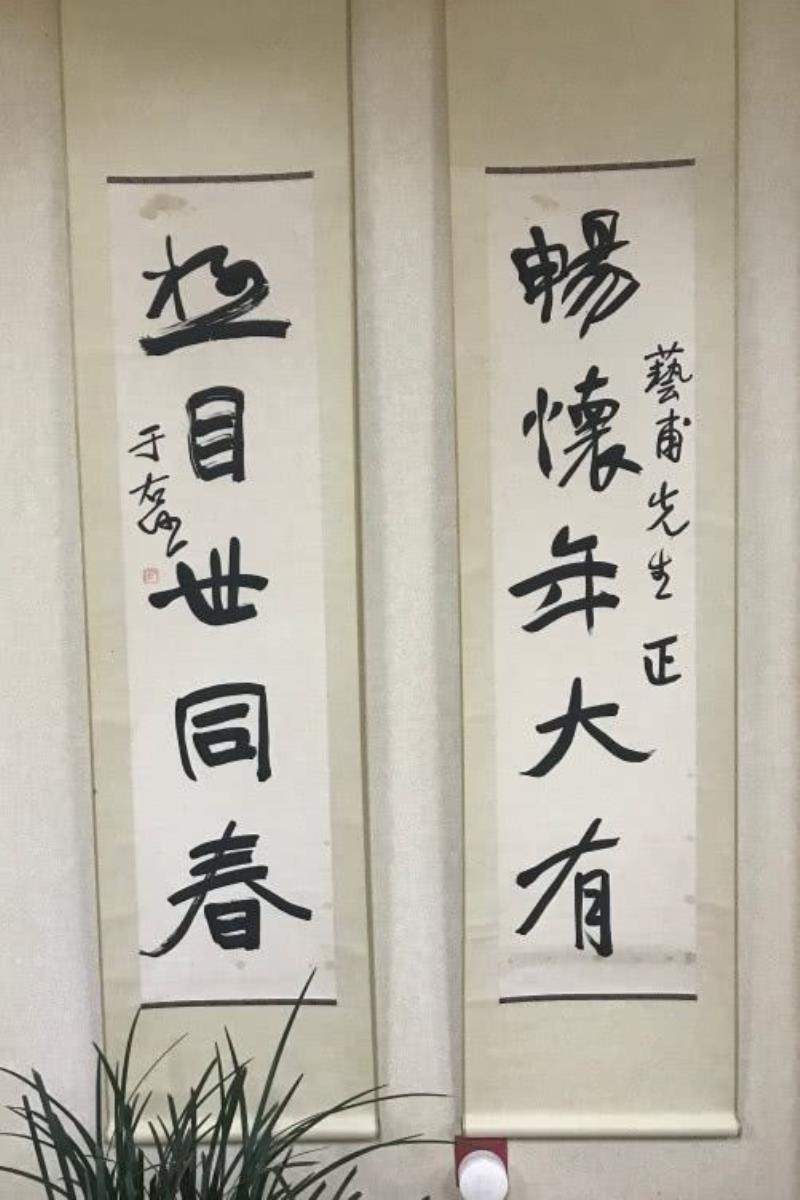 暢懷年大有
藝甫先生正
極目世同春
于右任